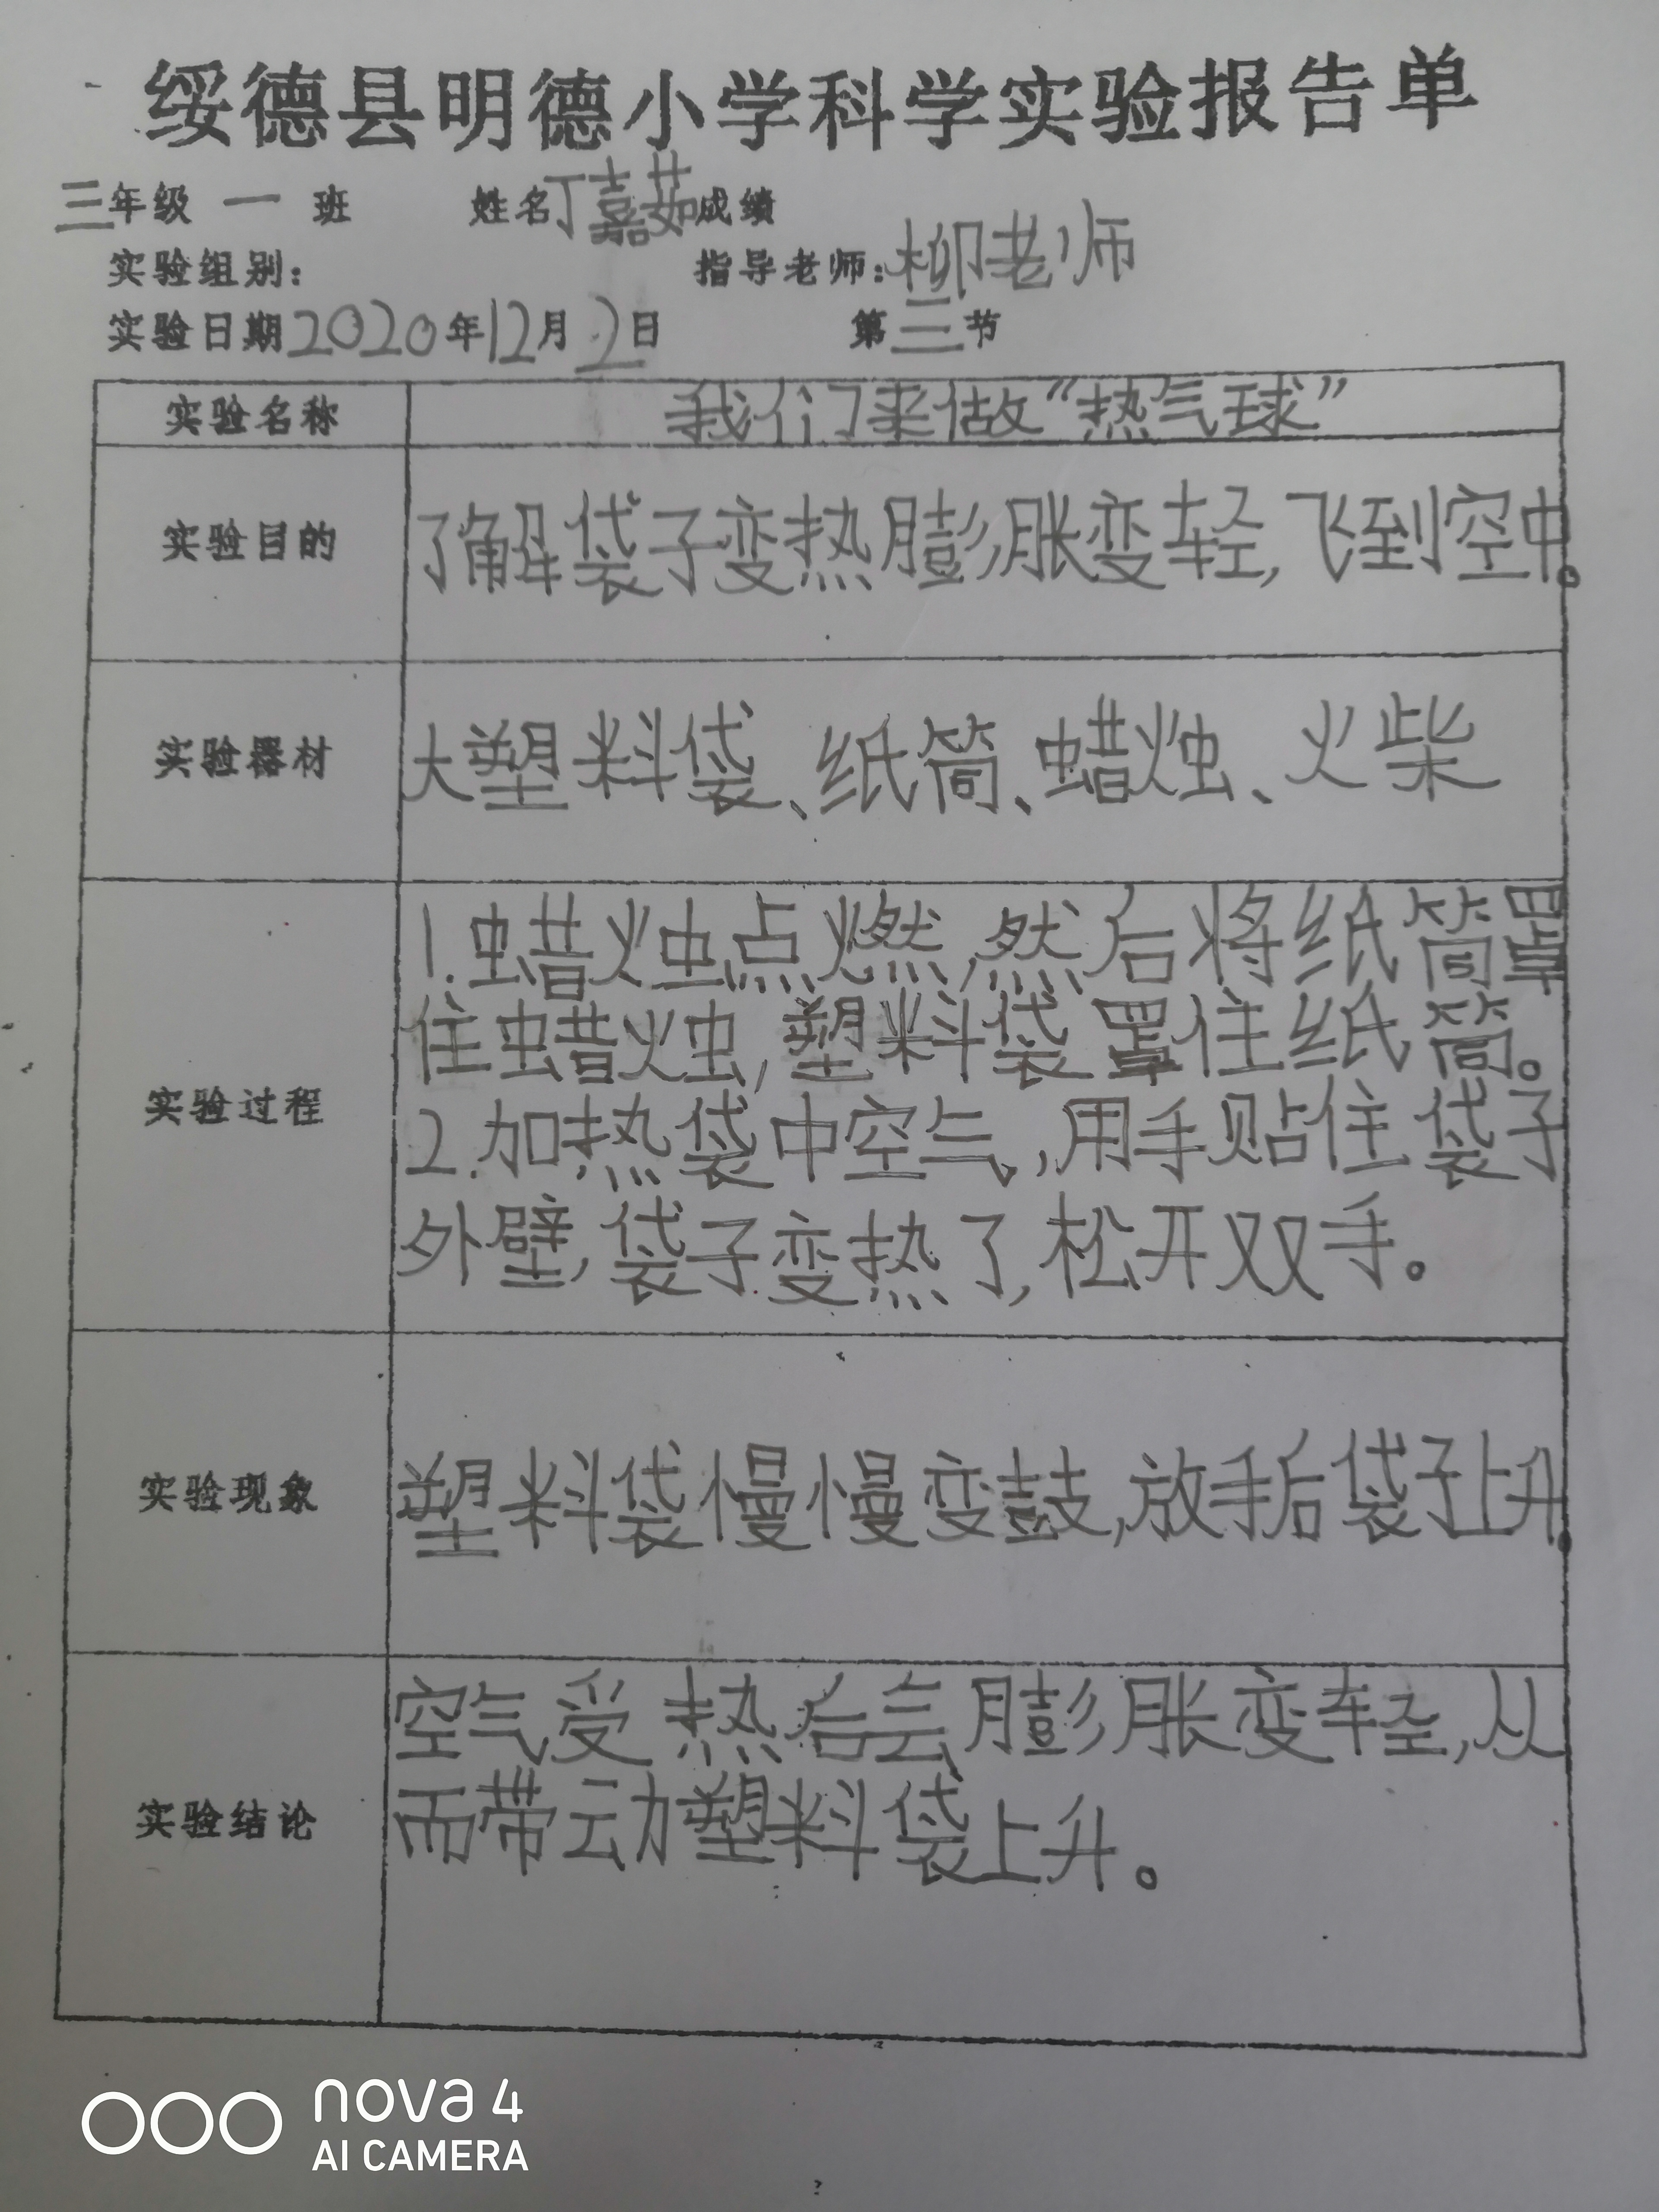 绥德县明德小学科学实验报告单
三年级 一 班 姓名丁嘉茹成绩
实验组别： 指导老师：柳老师
实验日期2020年12月2日 第三节
实验名称 我们来做“热气球”
实验目的 了解袋子变热膨胀变轻，飞到空中。
实验器材 大塑料袋、纸筒、蜡烛、火柴
1.蜡烛点燃，然后将纸筒罩
住蜡烛，塑料袋罩住纸筒。
实验过程
2.加热袋中空气，用手贴住袋子
外壁，袋子变热了，松开双手。
实验现象 塑料袋慢慢变鼓，放手后袋子上升。
空气受热后会膨胀变轻，从
实验结论 而带动塑料袋上升。
nova 4
AI CAMERA